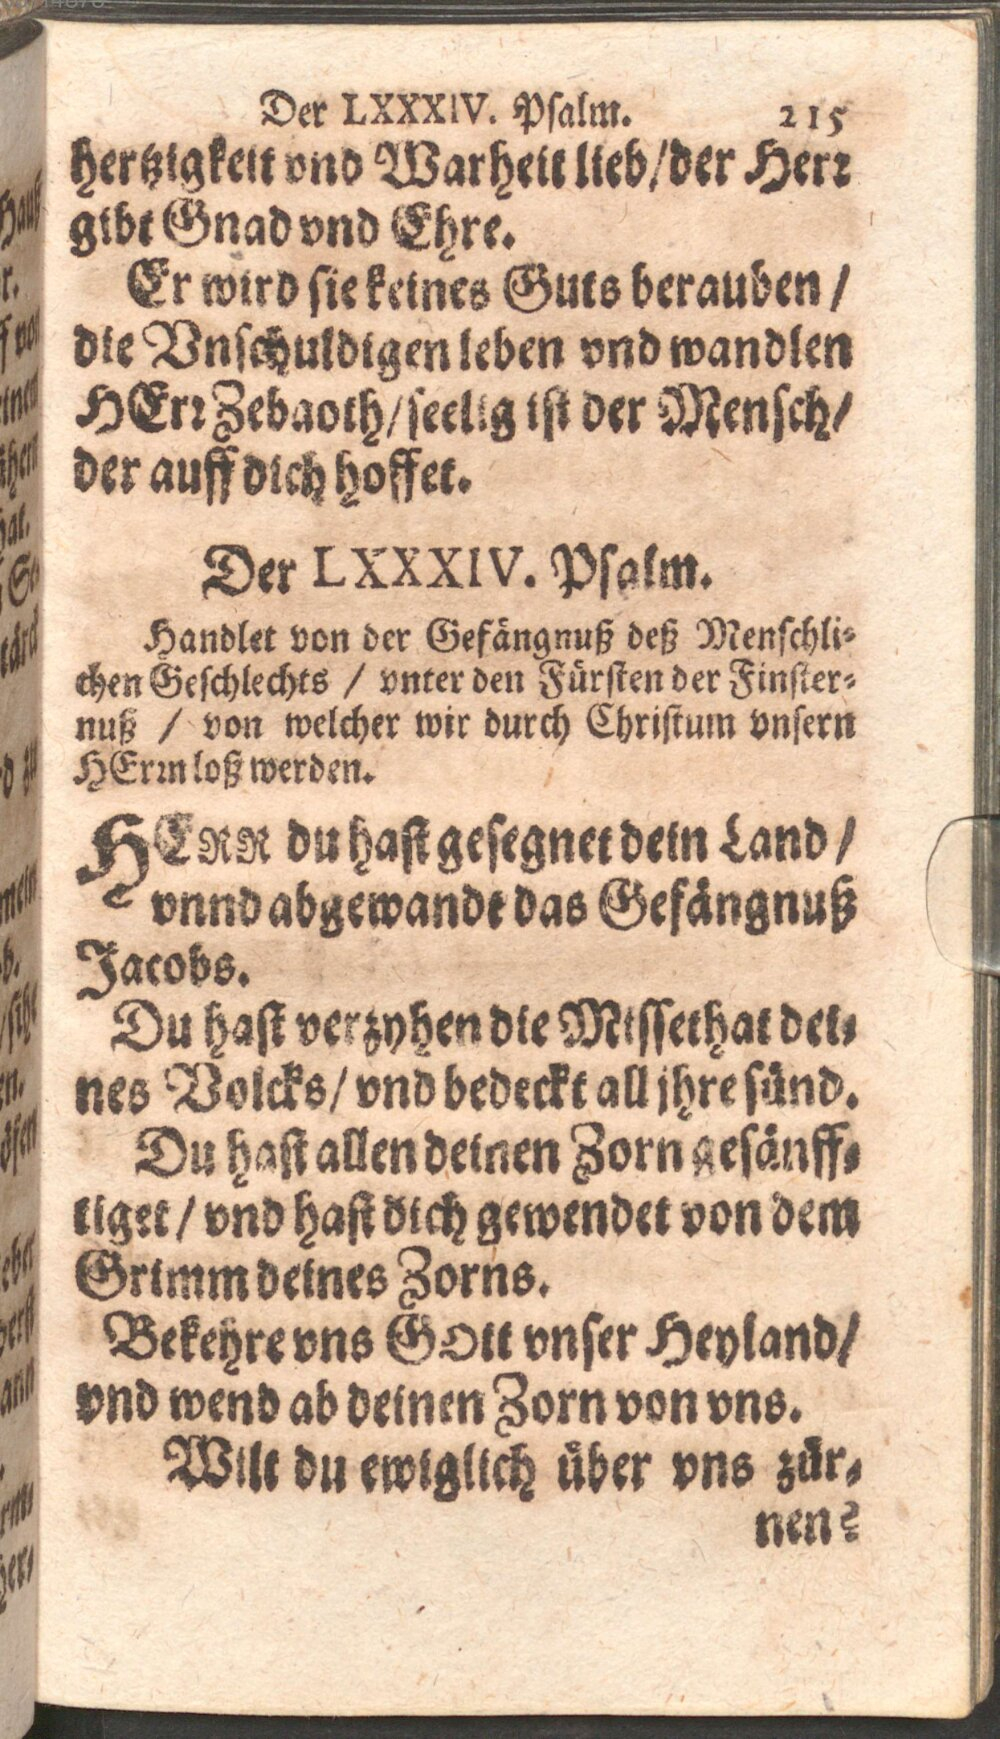 Der LXXXIV. Psalm. 215
hertzigkeit vnd Warheit lieb/der Herr
gibt Gnad vnd Ehre.
Er wird sie keines Guts berauben /
die Vnschuldigen leben vnd wandlen
HErr Zebaoth/seelig ist der Mensch/
der auff dich hoffet.
Der LXXXIV. Psalm.
Handlet von der Gefängnuß deß Menschli-
chen Geschlechts / vnter den Fürsten der Finster-
nuß / von welcher wir durch Christum vnsern
HErrn loß werden.
HERR du hast gesegnet dein Land /
vnnd abgewandt das Gefängnuß
Jacobs.
Du hast verzyhen die Missethat dei-
nes Volcks/ vnd bedeckt all jhre sünd.
Du hast allen deinen Zorn gesänff-
tiget / vnd hast dich gewendet von dem
Grimm deines Zorns.
Bekehre vns GOtt vnser Heyland/
vnd wend ab deinen Zorn von vns.
Wilt du ewiglich über vns zür-
nen?